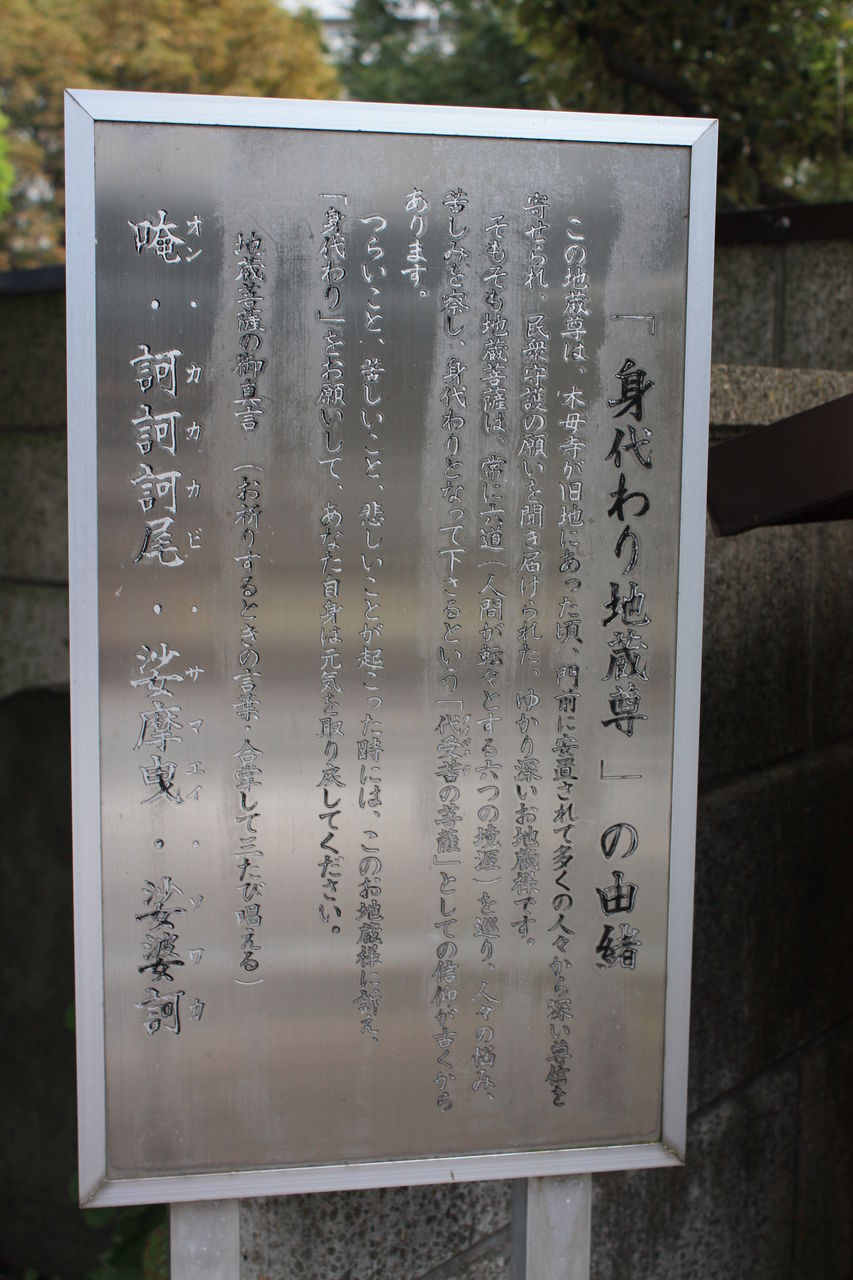 「身代わり地蔵尊」の由緒
この地蔵尊は、木母寺が旧地にあった頃、門前に安置されて多くの人々から深い尊信を
寄せられ、民衆守護の願いを聞き届けられた、ゆかり深いお地蔵様です。
そもそも地蔵菩薩は、常に六道(人間が転々とする六つの境涯)を巡り、人々の悩み、
苦しみを察し、身代わりとなって下さるという「代受苦の菩薩」としての信仰が古くから
あります。
つらいこと、苦しいこと、悲しいことが起こった時には、このお地蔵様に訴え、
「身代わり」をお願いして、あなた自身は元気を取り戻してください。
地蔵菩薩の御真言 (お祈りするときの言葉・合掌して三たび唱える)
オン・カカカビ・サマエイ・ソワカ
唵・訶訶訶尾・娑摩曳・娑婆訶